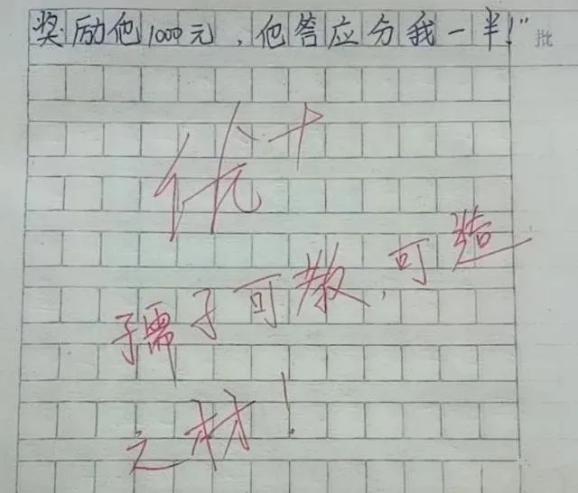 奖励他1000元,他答应分我一半!"
批
优+
孺子可教,可造
之材!